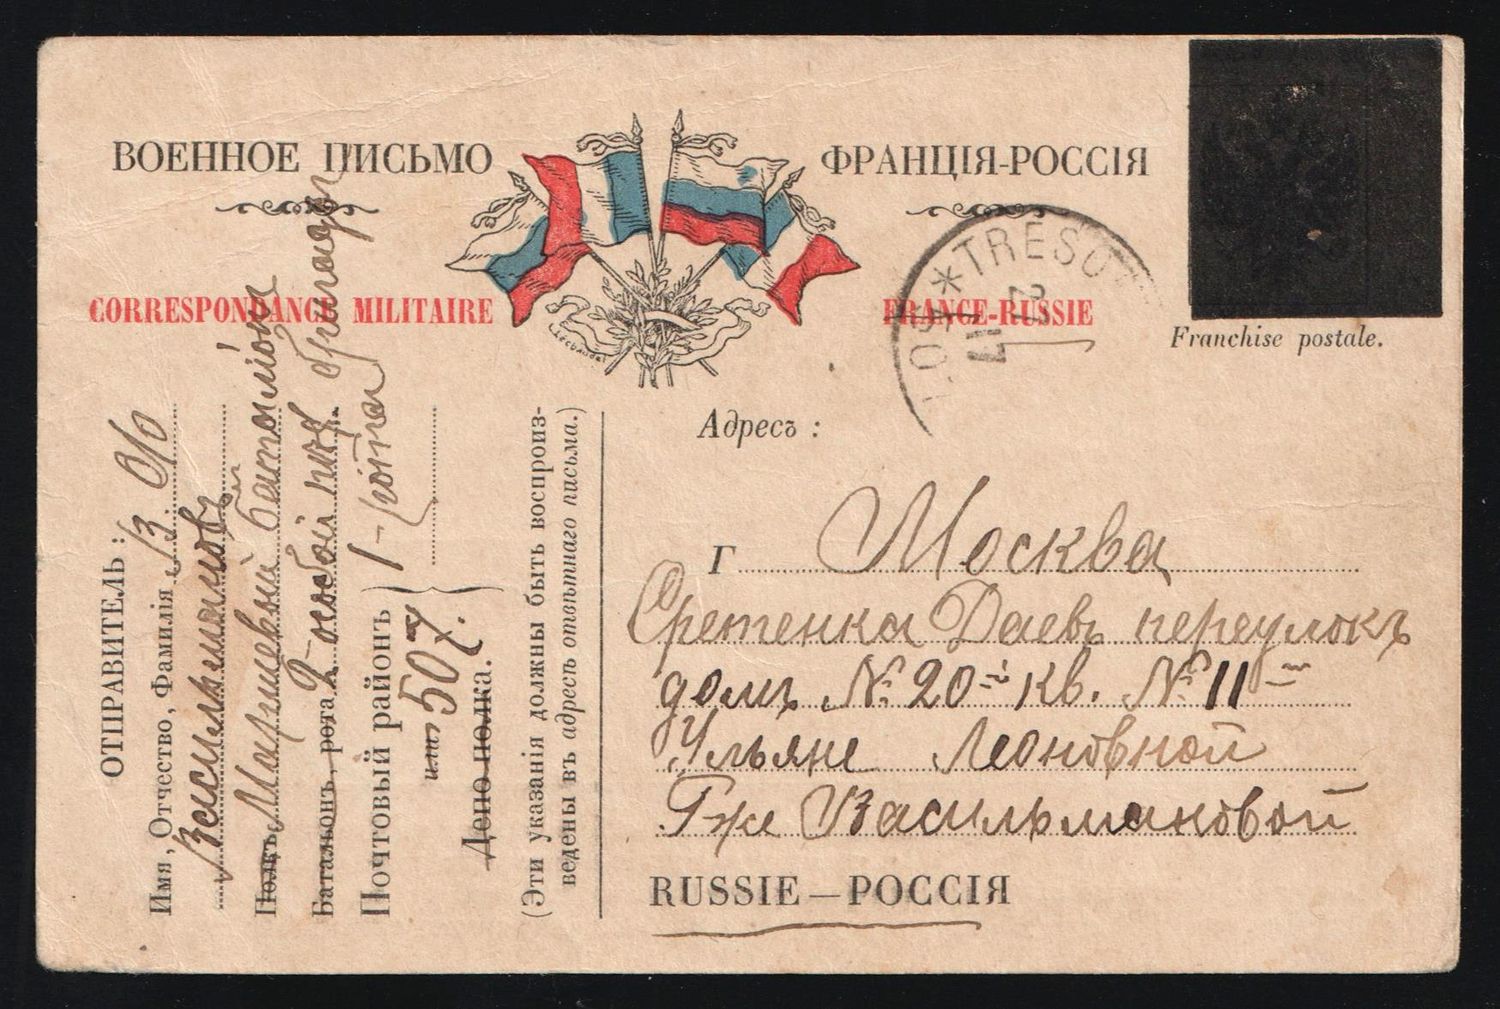 ВОЕННОЕ ПИСЬМО
ФРАНЦІЯ-РОССІЯ
CORRESPONDANCE MILITAIRE
FRANCE-RUSSIE
Franchise postale.
* TRESOR
Адресъ :
Г Москва
Сретенка Даевъ переулокъ
домъ № 20 кв. № 11
Ульяне Леоновной
Гже Васильмановой
RUSSIE — РОССІЯ
ОТПРАВИТЕЛЬ :
Имя, Отчество, Фамилія
Полкъ Маршевый баталіонъ
Баталіонъ, рота 2 особой
Почтовый районъ } 1-рота
или 507
Депо полка.
(Эти указанія должны быть воспроиз-
ведены въ адресъ отвѣтнаго письма.)